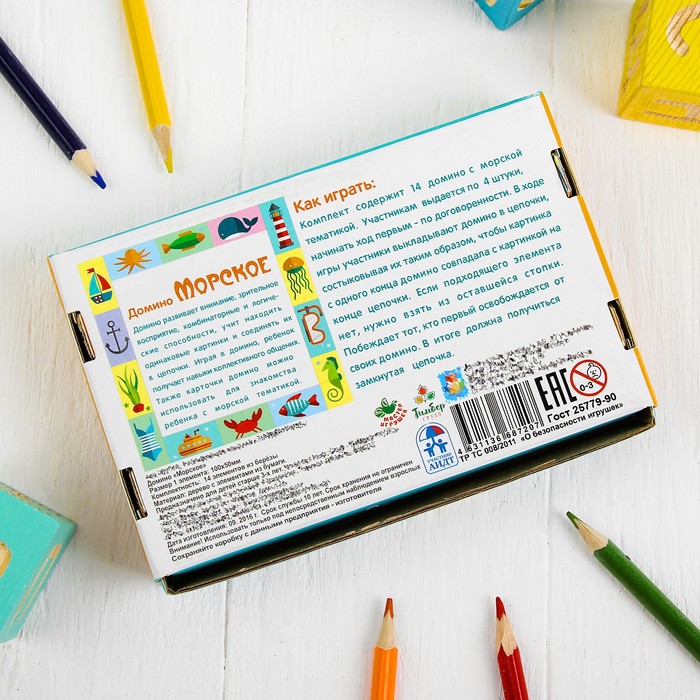 Домино МОРСКОЕ
Домино развивает внимание, зрительное
восприятие, комбинаторные и логиче-
ские способности, учит находить
одинаковые картинки и соединять их
в цепочки. Играя в домино, ребенок
получает навыки коллективного общения.
Также карточки домино можно
использовать для знакомства
ребенка с морской тематикой.
Как играть:
Комплект содержит 14 домино с морской
тематикой. Участникам выдается по 4 штуки,
начинать ход первым - по договоренности. В ходе
игры участники выкладывают домино в цепочки,
состыковывая их таким образом, чтобы картинка
с одного конца домино совпадала с картинкой на
конце цепочки. Если подходящего элемента
нет, нужно взять из оставшейся стопки.
Побеждает тот, кто первый освобождается от
своих домино. В итоге должна получиться
замкнутая цепочка.
Домино «Морское»
Размер 1 элемента: 100х50мм
Комплектность: 14 элементов из березы.
Материал: дерево с элементами из бумаги.
Предназначено для детей старше 3 лет.
Дата изготовления: 09. 2016 г. Срок службы 10 лет. Срок хранения не ограничен
Внимание! Использовать только под непосредственным наблюдением взрослых
Сохраняйте коробку с данными предприятия - изготовителя
МАСТЕР ИГРУШЕК
Тимбер
ГРУПП
УЧАСТНИК
АИДТ
4 631136 687207
EAC
0-3
Гост 25779-90
ТР ТС 008/2011 «О безопасности игрушек»